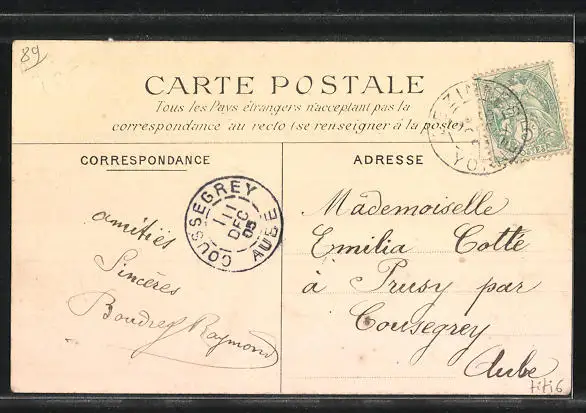 89
CARTE POSTALE
Tous les Pays étrangers n'acceptant pas la
correspondance au recto (se renseigner à la poste)
CORRESPONDANCE
ADRESSE
COUSSEGREY
11
DEC
05
AUBE
amitiés
Sincères
Raymond
Mademoiselle
Emilia Cotte
à Prusy par
Cousegrey
Aube
titi6
POSTES